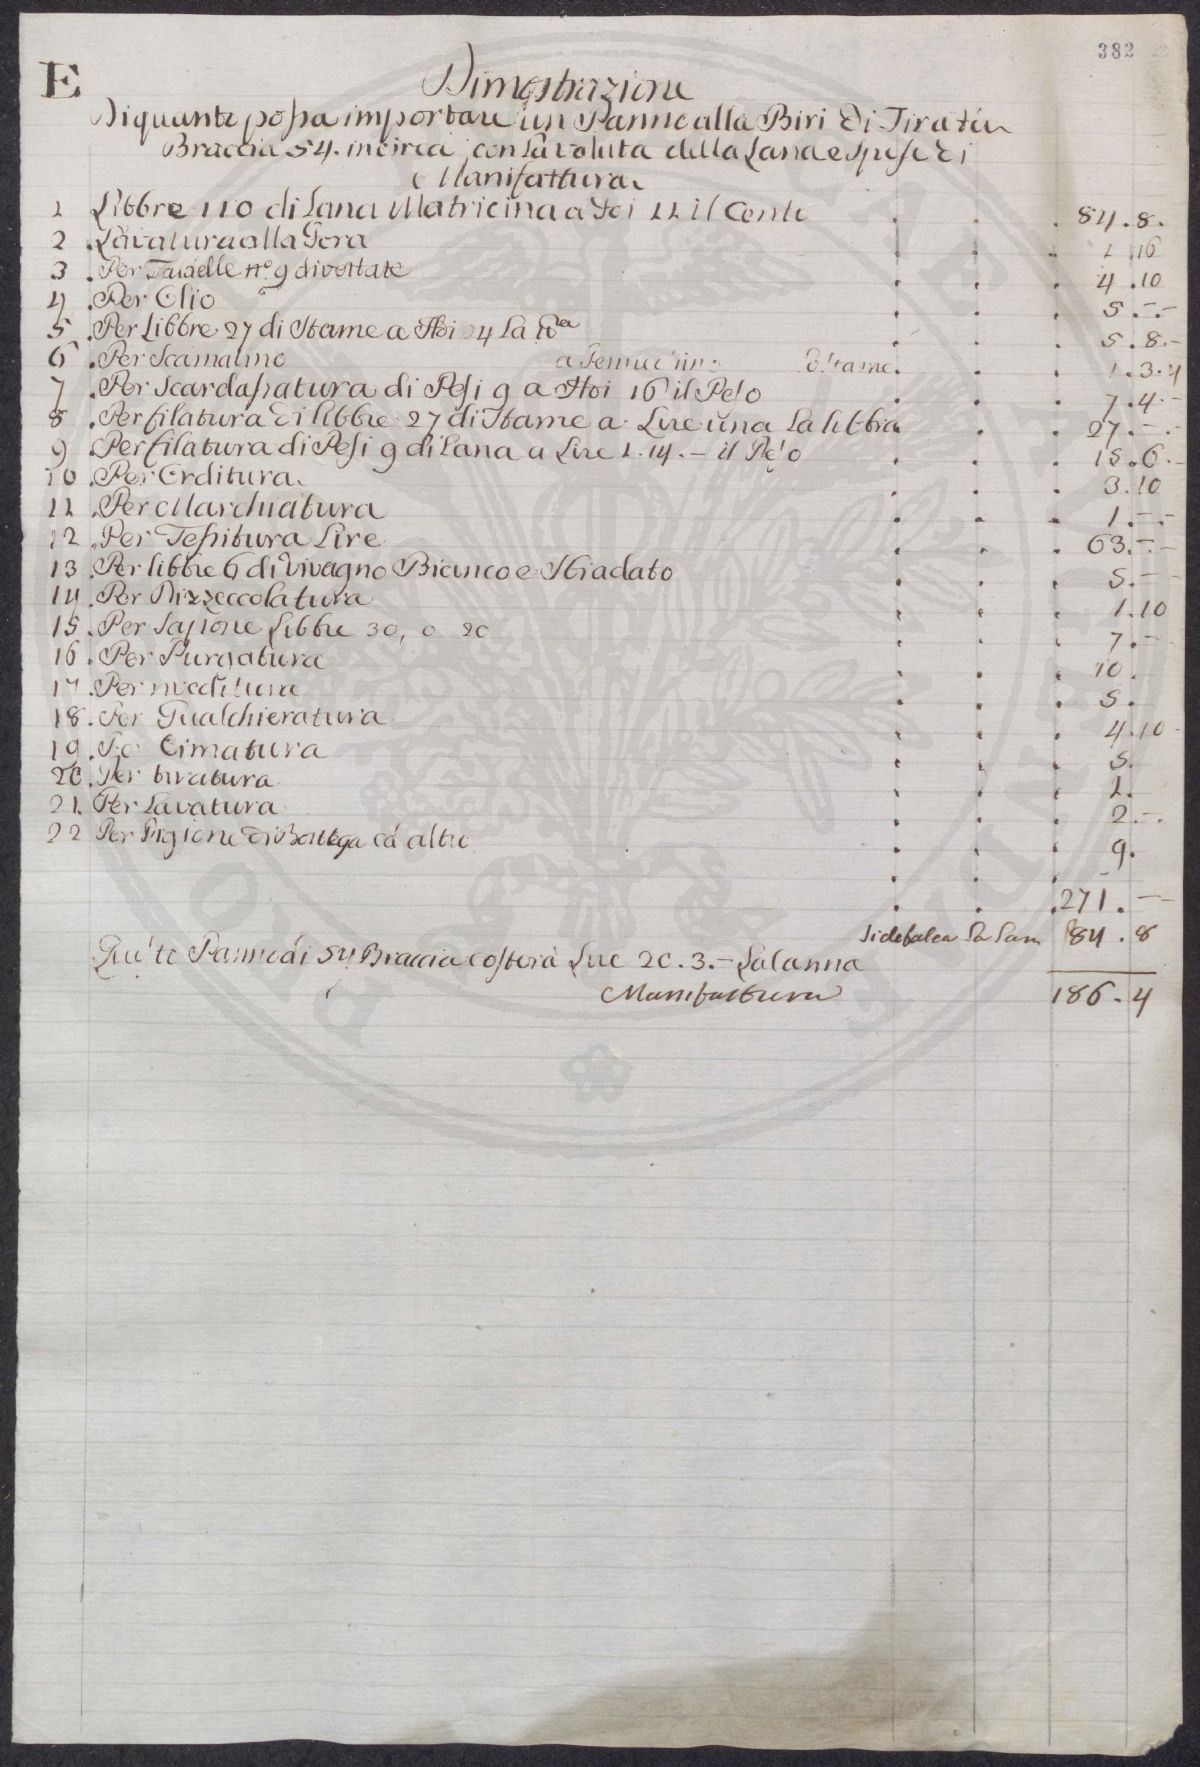 382
E
Dimostrazione
Di quante possa importare un Panno alla Biri di Tiratu
Braccia 54. incirca con la valuta della Lana e spese di
Manifattura
1 Libbre 110 di Lana Matricina a Scudi 11 il Cento . . . 84.8.
2 . Lavatura alla Gora . . . 1.16
3 . Per Faldelle n.º 9 divettate . . . 4.10
4 . Per Olio . . . 5.-.-
5 . Per Libbre 27 di Stame a Soldi 4 La lb.ª . . . 5.8.-
6 . Per Scamatino a Stame . . . 1.3.4
7 . Per Scardassatura di Pesi 9 a Soldi 16 il Peso . . . 7.4.-
8 . Per filatura di libbre 27 di Stame a Lire una La libbra . . . 27.-.-
9 . Per filatura di Pesi 9 di Lana a Lire 1.14.- il Peso . . . 15.6.-
10 . Per Orditura . . . 3.10
11 . Per Marchiatura . . . 1.-.-
12 . Per Tessitura Lire . . . 63.-.-
13 . Per libbre 6 di Vivagno Bianco e Stiadato . . . 5.-
14 . Per Dizzeccolatura . . . 1.10
15 . Per Sapone Libbre 30, o 20 . . . 7.-
16 . Per Purgatura . . . 10.
17 . Per riveditura . . . 5.
18 . Per Gualchieratura . . . 4.10
19 . Per Cimatura . . . 5.
20 . Per tiratura . . . 1.
21 . Per Lavatura . . . 2.-.
22 Per Pigione di Bottega ed altro . . . 9.
. . . 271.-
Si defalca La Lana 84.8
Questo Panno di 54 Braccia costerà Lire 20.3.- La Canna
Manifattura 186.4
PIO